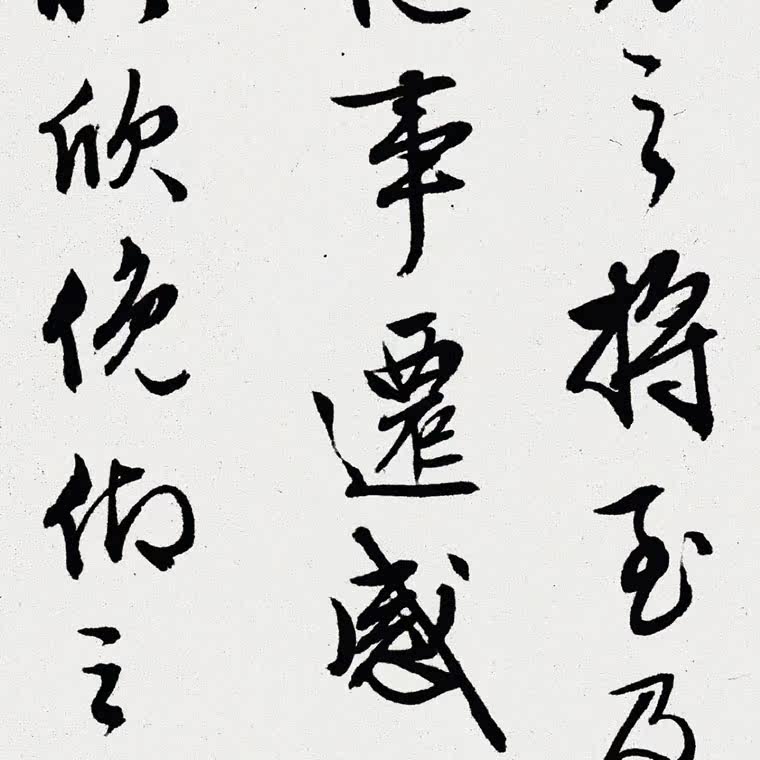 之將至及
事遷感
欣俛仰之